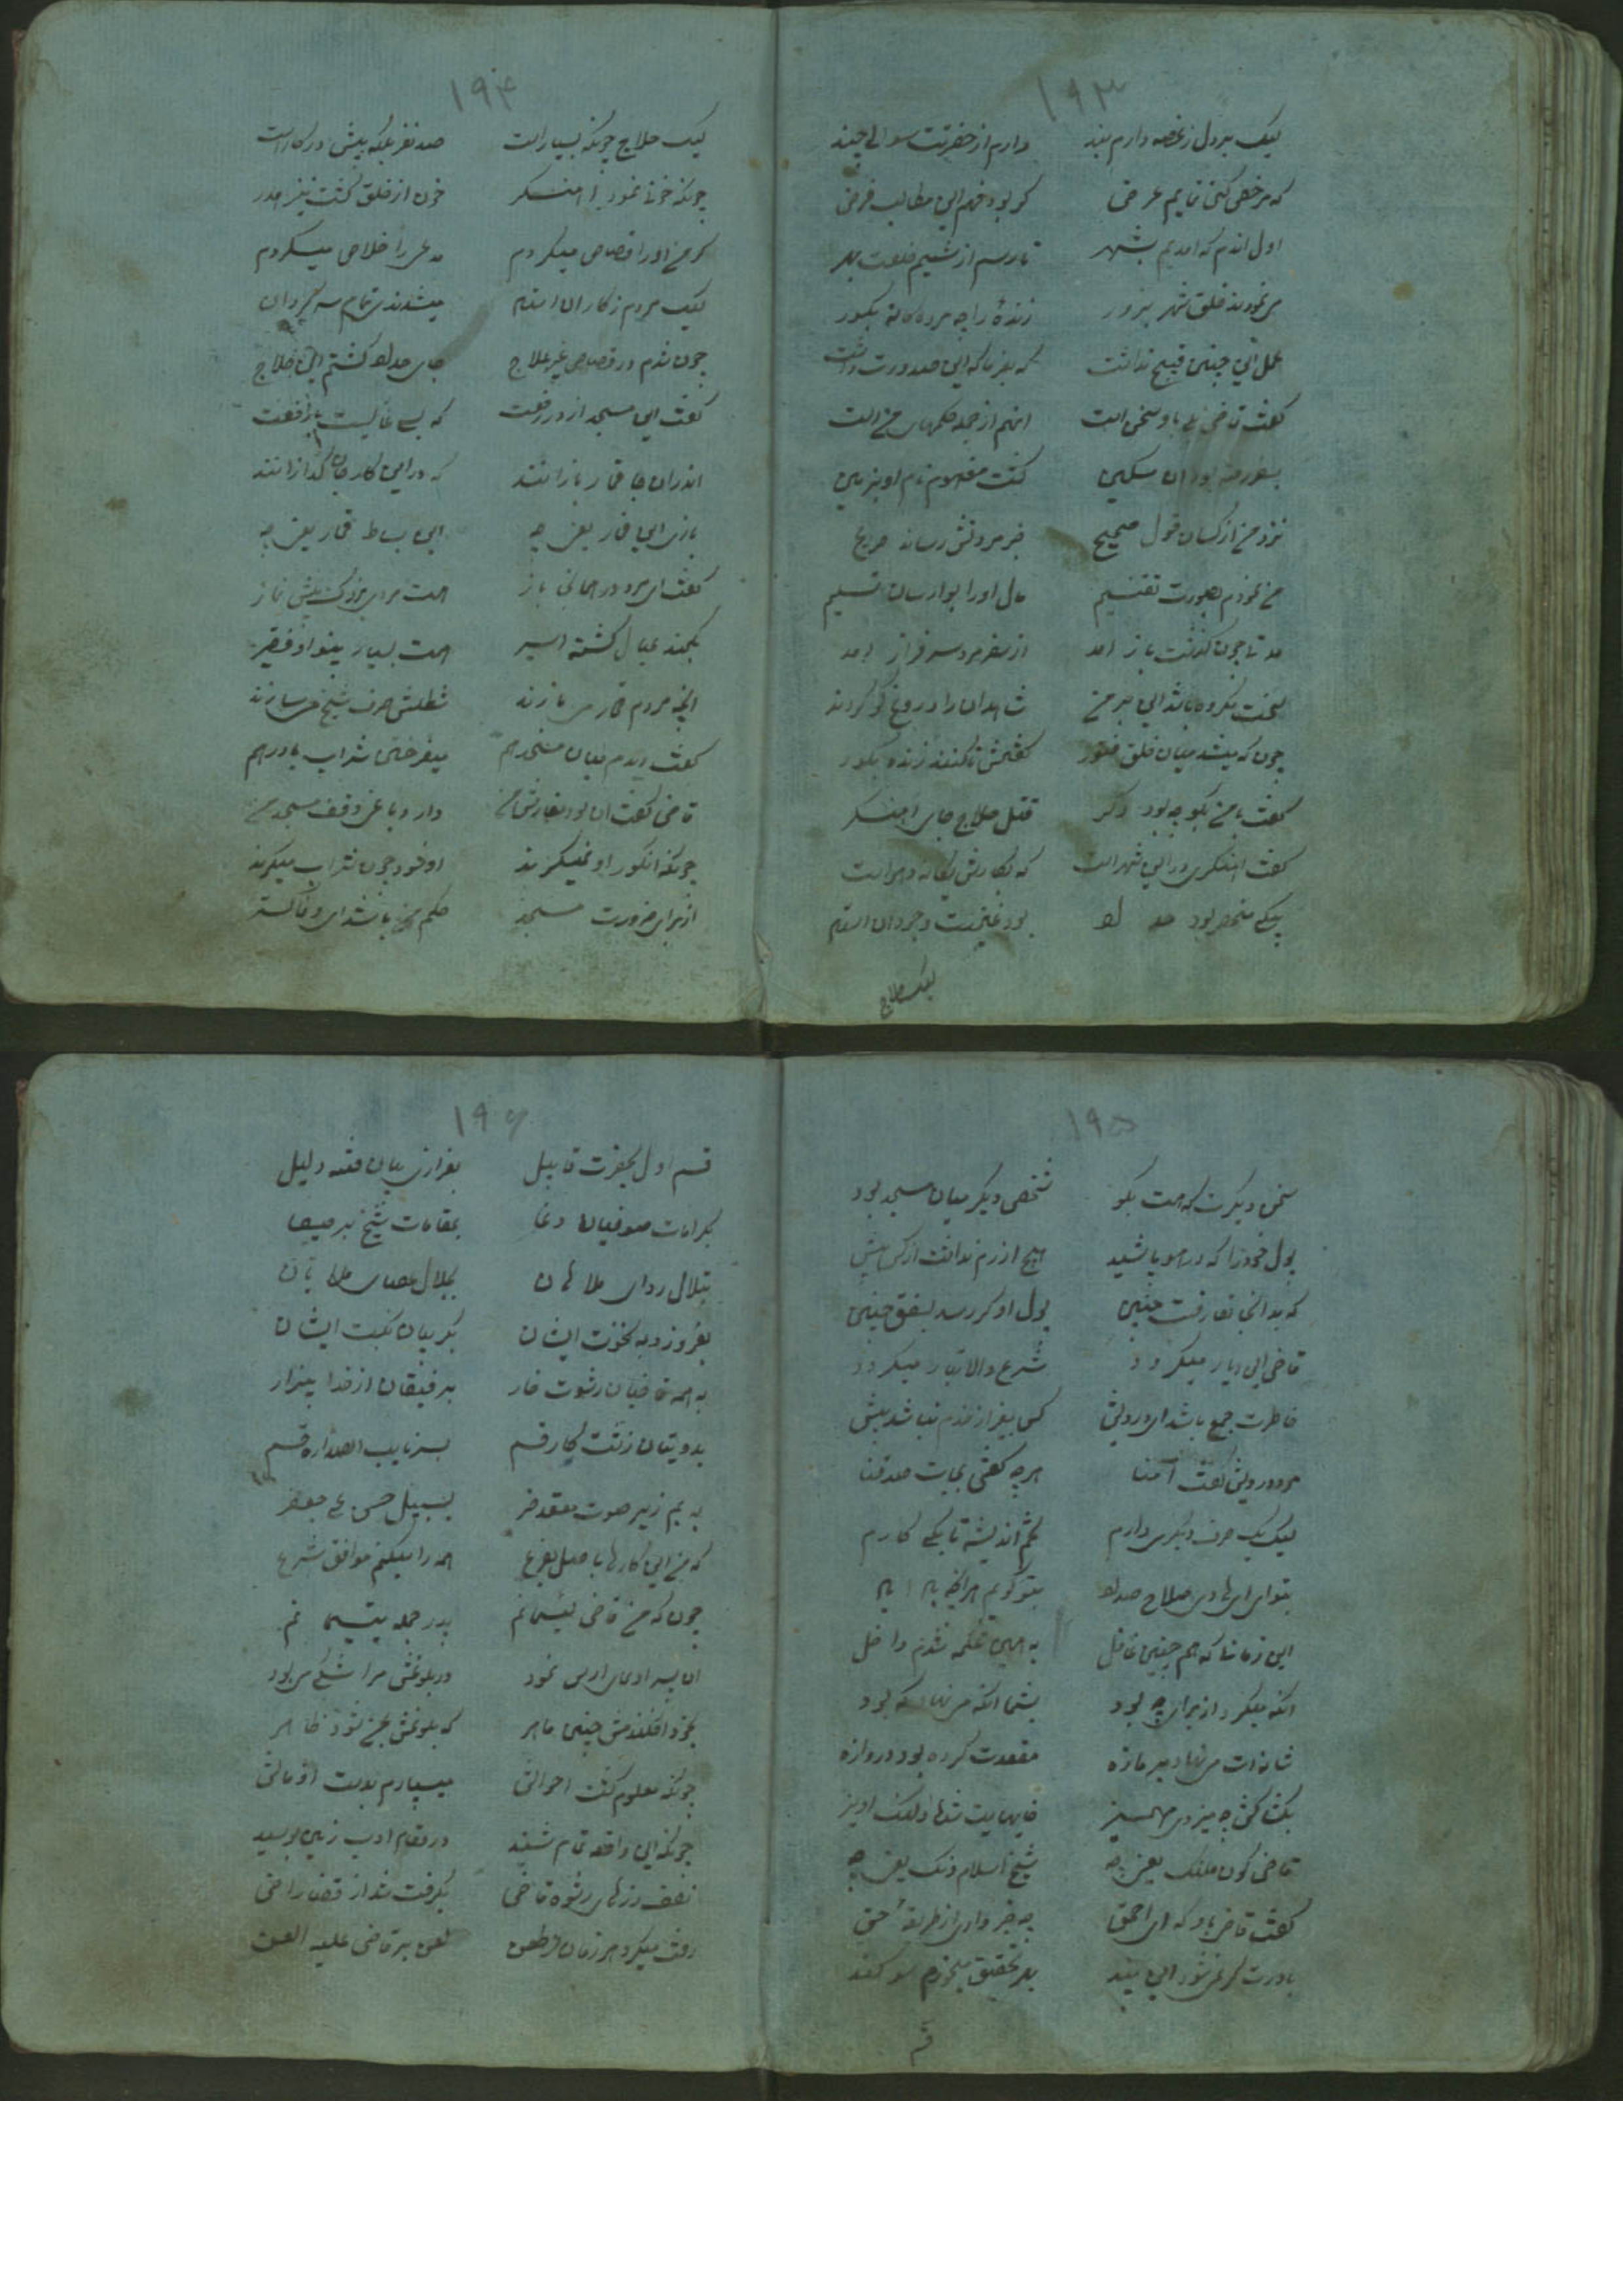 ۱۹۳
لیک بر دل ز غصه دارم بند دارم از حضرتت سوالی چند
که مرخص کنی نمایم عرض کر بود فهم این مطالب فرض
اول اندم که امدیم بشهر تا رسم از نسیم خلعت بهر
می نمودند خلق شهر بزور زندهٔ را چه مرده کانه بکور
عمل این چنین قبیح نداشت که بفرما که این ضرورت داشت
کفت قاضی بلی باو سخن است اینهم از جمله حکمهای من است
بسفر رفته بود ان مسکین کشت مفهوم نام او بزمین
نزد من از کسان قول صحیح خبر مردنش رساند صریح
من نمودم بصورت تقسیم مال او را بوارسان تسلیم
مدتی چون گذشت باز امد از سفر مرد سرفراز امد
سخت مکروه باشد این بر من شاهدان را دروغ گو کردند
چون که میشد میان خلق فتور کفتمش تا کنند زنده بکور
کفت با من بکو چه بود دکر قتل حلاج جای اهنکر
کفت اهنکری در این شهر است که بکارش یکانه دهر است
یکی منحصر بود بود غنیمت وجود ان استاد
لیک حلاج
۱۹۴
لیک حلاج چونکه بسیار است صد نفر بلکه بیش در کار است
چونکه خونا نمود اهنکر خون از خلق کشت نیز هدر
کر من او را قصاص میکردم مدعی را خلاص میکردم
لیک مردم ز کار ان استاد میشدندی تمام سر کردان
چون شدم در قصاص غیر علاج جای حداد کشتم این حلاج
کفت این مسجد از در رفعت که بسی عالیست با رفعت
اندران جا قمار بازانند که در این کار جان کدازانند
بازی این قمار یعنی چه این بساط قمار یعنی چه
کفت ای مرد در همانی باز هست مردی بزرک پیش نماز
بکمند عیال کشته اسیر هست بسیار بینوا و فقیر
انچه مردم قمار می بازند شطلش صرف شیخ می سازند
کفت دیدم میان مسجد هم میفرختی شراب با درهم
قاضی کفت ان بود سفارش من دارد باغی وقف مسجد من
چونکه انکور او نمیکیرند او خود چون شراب میکیرند
از برای ضرورت مسجد حکم من باشد ای وفاکستر
۱۹۵
سخن دیکرت که هست بکو شخص دیکر میان مسجد بود
بول خود را که در هوا پاشید هیچ ازرم نداشت از کس بیش
که بد انجا نعارفت چنین بول او کر رسد بسقف چنین
قاضی این دیار میکردد شرع والا تبار میکردد
خاطرت جمع باشد ای درویش کس بغیر از خدم نباشد بیش
مرد درویش کفت آمنا هرچه کفتی بجات صدقنا
لیک یک حرف دیکری دارم بخم اندیشه تا یکی کارم
بتو ای هادی صلاح صداد بتو کویم هر انچه بادا باد
این زمانا که هم چنین غافل به همین محکمه شدم داخل
انکه میکرد از برای چه بود بشما انکه می نهاد که بود
شانه ات می نهاد بر مازه مقعدت کرده بود دروازه
بکشاکش چه میزدی مهمیز خایهایت شدها ولنک اویز
قاضی کون ملنک یعنی چه شیخ اسلام دنک یعنی چه
کفت قاضی باو که ای احمق چه خبر داری از طریقهٔ حق
باورت کر نمیشود این پند بهر تحقیق میخورم سوکند
قسم
۱۹۶
قسم اول بحضرت قابیل بفرازی بیان فقه دلیل
بکرامات صوفیان دغا بمقامات شیخ برصیصا
بتلال ردای ملاهان بجلال عصای ملا بان
بغرور و به نخوت ایشان بکریبان نکبت ایشان
به همه قاضیان رشوت خار برفیقان از خدا بیزار
بدویتان زشت کار قسم بسر نایب الصداره قسم
به بم زیر صوت مقعد خر بسبیل حسن علی جعفر
که من این کارها باصل بفرع همه را میکنم موافق شرع
چون که من قاضی یتیمانم پدر جمله یتیمانم
ان پسر ادعای ارس نمود در بلوغش مرا شکی می بود
بخود افکندمش چنین ماهر که بلوغش بمن شود ظاهر
چونکه معلوم کشت احوالش میسپارم بدست او مالش
چونکه این واقعه تمام شنید در مقام ادب زمین بوسید
نصف زرهای رشوه قاضی بکرفت شد از قضا راضی
رفت میکرد هر زمان لعن بر قاضی علیه العن